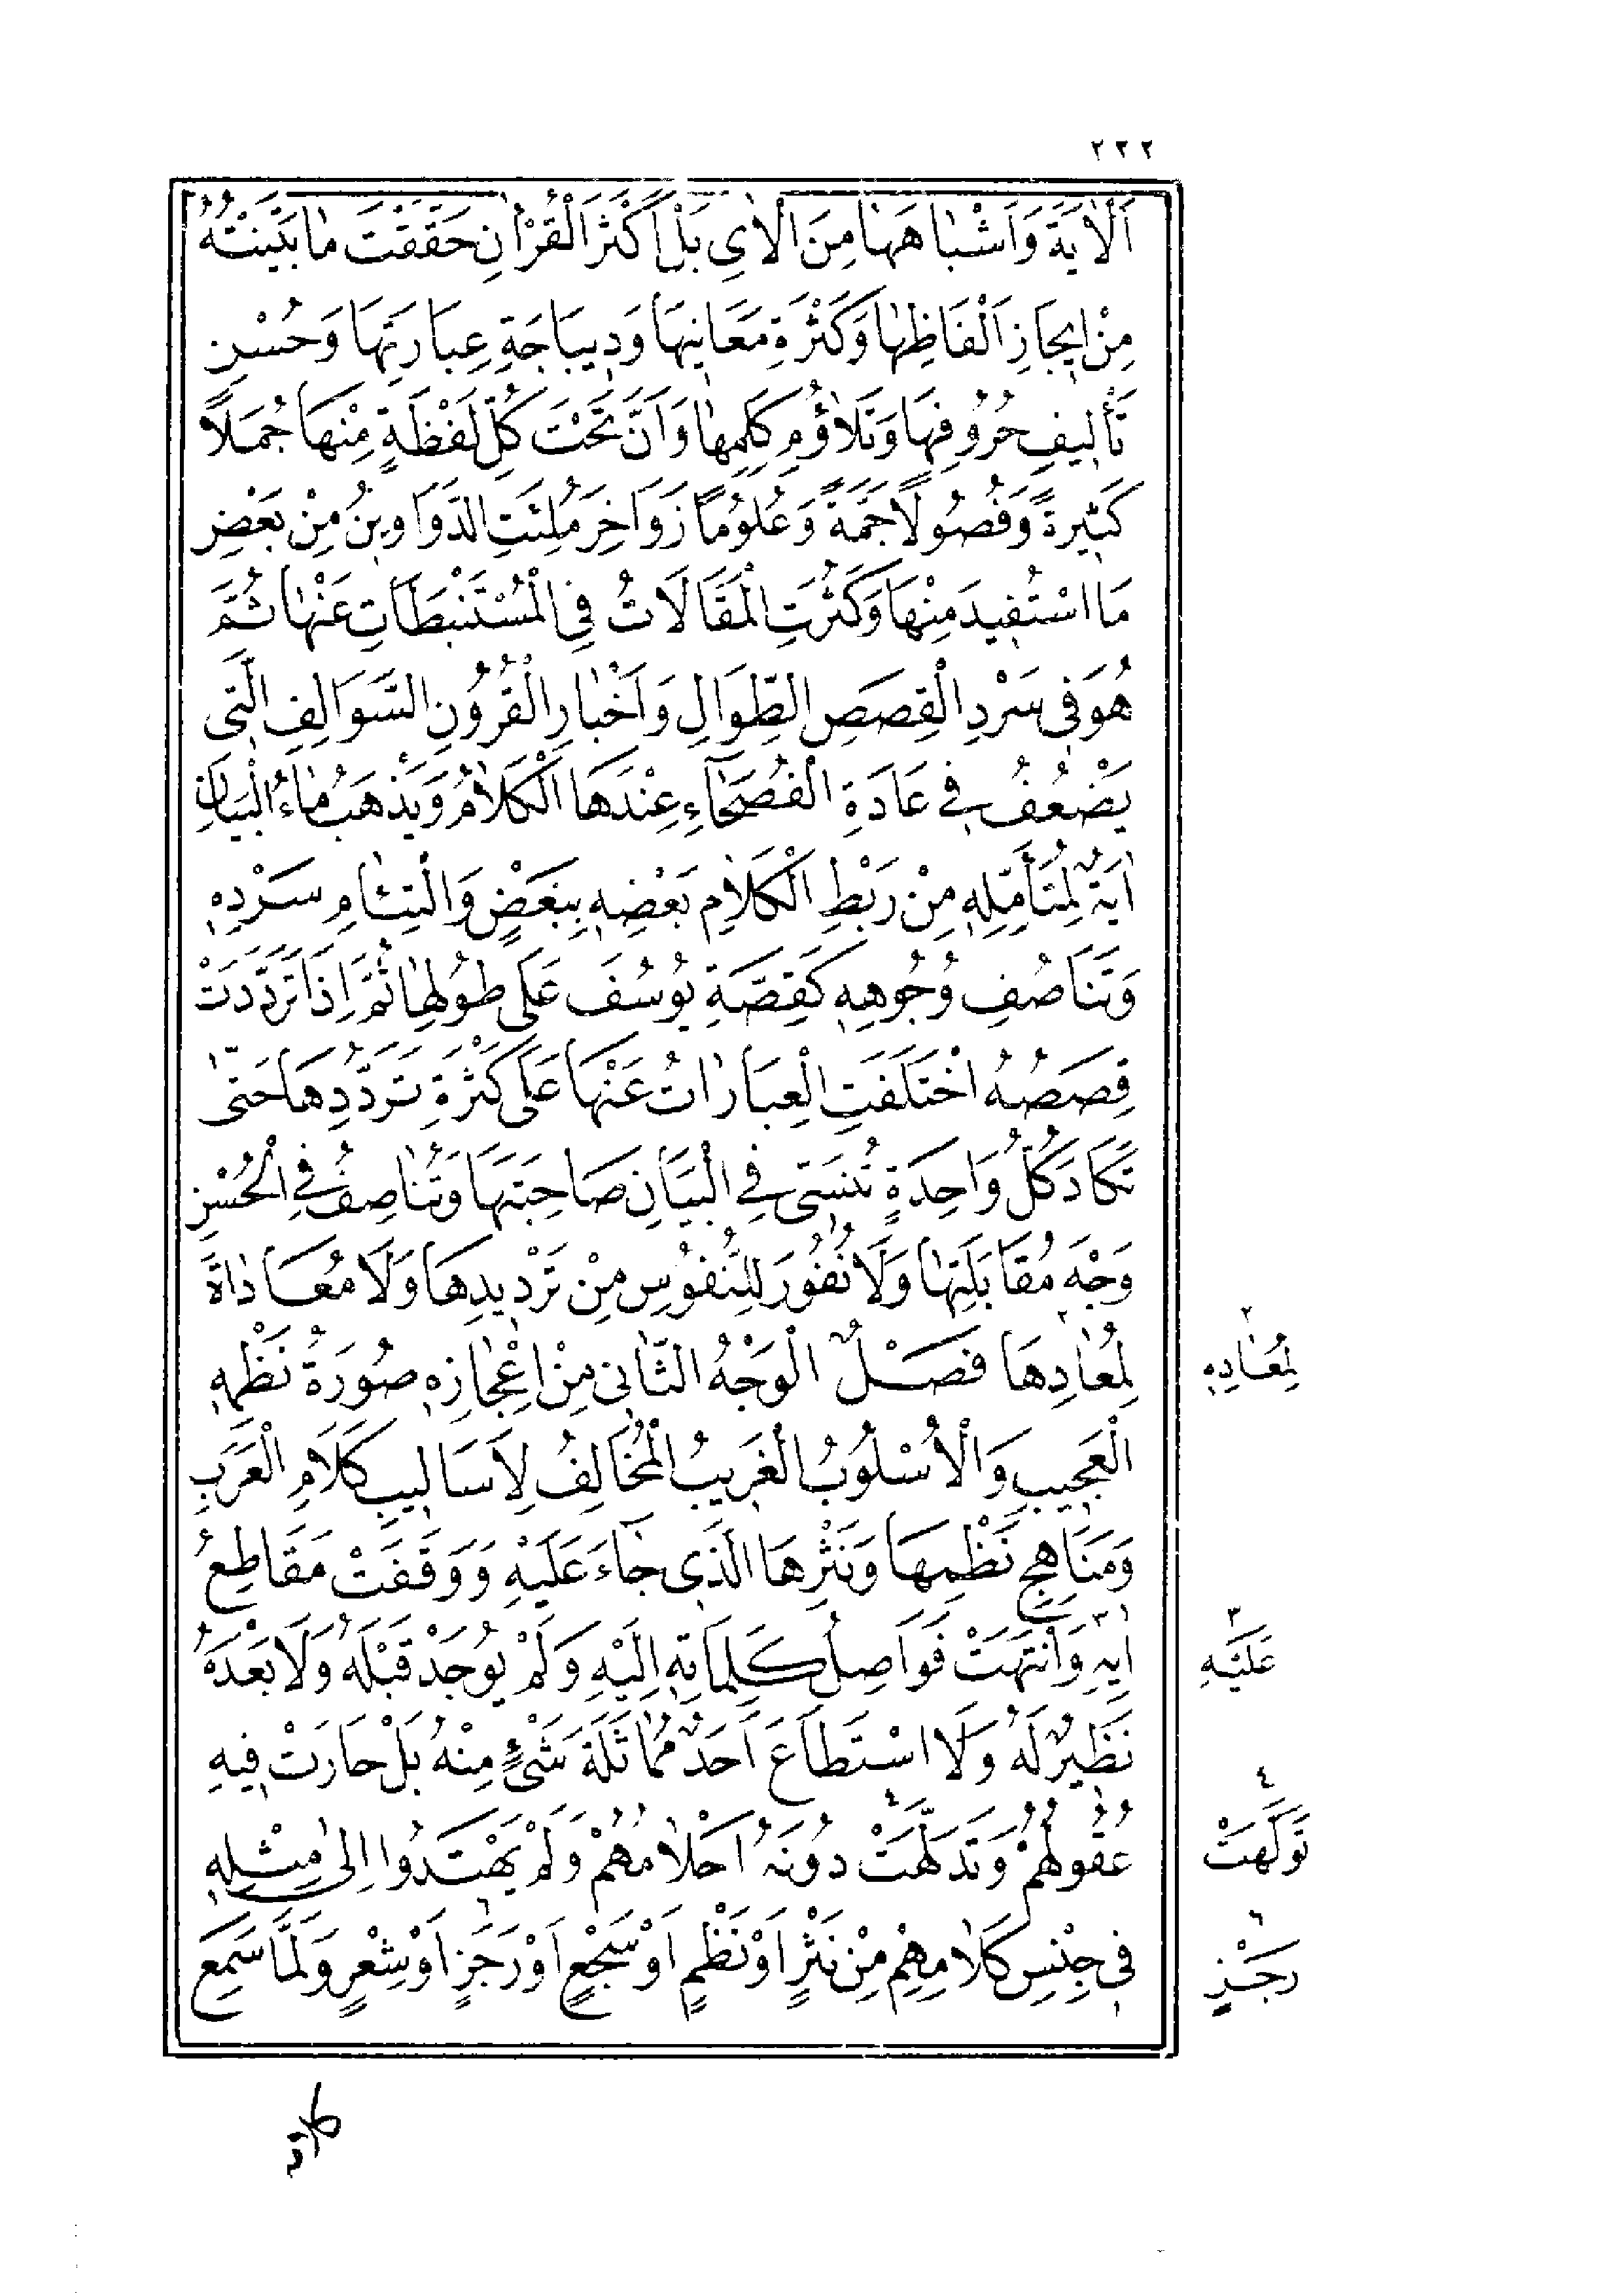 ٢٢٢
اَلْاٰيَةَ وَاَشْبَاهَهَا مِنَ الْاٰىِ بَلْ اَكْثَرَ الْقُرْاٰنِ حَقَّقْتَ مَا بَيَّنْتُهُ
مِنْ اِيجَازِ اَلْفَاظِهَا وَكَثْرَةِ مَعَانِيهَا وَدِيبَاجَةِ عِبَارَتِهَا وَحُسْنِ
تَأْلِيفِ حُرُوفِهَا وَتَلَاؤُمِ كَلِمِهَا وَاَنَّ تَحْتَ كُلِّ لَفْظَةٍ مِنْهَا جُمَلًا
كَثِيرَةً وَفُصُولًا جَمَّةً وَعُلُومًا زَوَاخِرَ مُلِئَتِ الدَّوَاوِينُ مِنْ بَعْضِ
مَا اسْتُفِيدَ مِنْهَا وَكَثُرَتِ الْمَقَالَاتُ فِي الْمُسْتَنْبَطَاتِ عَنْهَا ثُمَّ
هُوَ فِى سَرْدِ الْقِصَصِ الطِّوَالِ وَاَخْبَارِ الْقُرُونِ السَّوَالِفِ الَّتِى
يَضْعُفُ فِي عَادَةِ الْفُصَحَاءِ عِنْدَهَا الْكَلَامُ وَيَذْهَبُ مَاءُ الْبَيَانِ
اٰيَةٌ لِمُتَأَمِّلِهِ مِنْ رَبْطِ الْكَلَامِ بَعْضِهِ بِبَعْضٍ وَالْتِئَامِ سَرْدِهِ
وَتَنَاصُفِ وُجُوهِهِ كَقِصَّةِ يُوسُفَ عَلَى طُولِهَا ثُمَّ اِذَا تَرَدَّدَتْ
قِصَصُهُ اخْتَلَفَتِ الْعِبَارَاتُ عَنْهَا عَلَى كَثْرَةِ تَرَدُّدِهَا حَتّٰى
تَكَادَ كُلُّ وَاحِدَةٍ تُنَسِّى فِي الْبَيَانِ صَاحِبَتَهَا وَتُنَاصِفُ فِي الْحُسْنِ
وَجْهَ مُقَابَلَتِهَا وَلَا نُفُورَ لِلنُّفُوسِ مِنْ تَرْدِيدِهَا وَلَا مُعَادَاةَ
لِمُعَادِهَا فَصْلٌ الْوَجْهُ الثَّانِى مِنْ اِعْجَازِهِ صُورَةُ نَظْمِهِ
٢ لِمُعَادِهِ
الْعَجِيبِ وَالْاُسْلُوبُ الْغَرِيبُ الْمُخَالِفُ لِاَسَالِيبِ كَلَامِ الْعَرَبِ
وَمَنَاهِجِ نَظْمِهَا وَنَثْرِهَا الَّذِى جَاءَ عَلَيْهِ وَوَقَفَتْ مَقَاطِعُ
اٰيِهِ ٣ وَانْتَهَتْ فَوَاصِلُ كَلِمَاتِهِ اِلَيْهِ وَلَمْ يُوجَدْ قَبْلَهُ وَلَا بَعْدَهُ
٣ عَلَيْهِ
نَظِيرٌ لَهُ وَلَا اسْتَطَاعَ اَحَدٌ مُمَاثَلَةَ شَىْءٍ مِنْهُ بَلْ حَارَتْ فِيهِ
عُقُولُهُمْ وَتَدَلَّهَتْ ٤ دُونَهُ اَحْلَامُهُمْ وَلَمْ يَهْتَدُوا اِلَى مِثْلِهِ
٤ تَوَلَّهَتْ
فِى جِنْسِ كَلَامِهِمْ مِنْ نَثْرٍ اَوْ نَظْمٍ اَوْ سَجْعٍ اَوْ رَجَزٍ ٦ اَوْ شِعْرٍ وَلَمَّا سَمِعَ
٦ رَجْزٍ